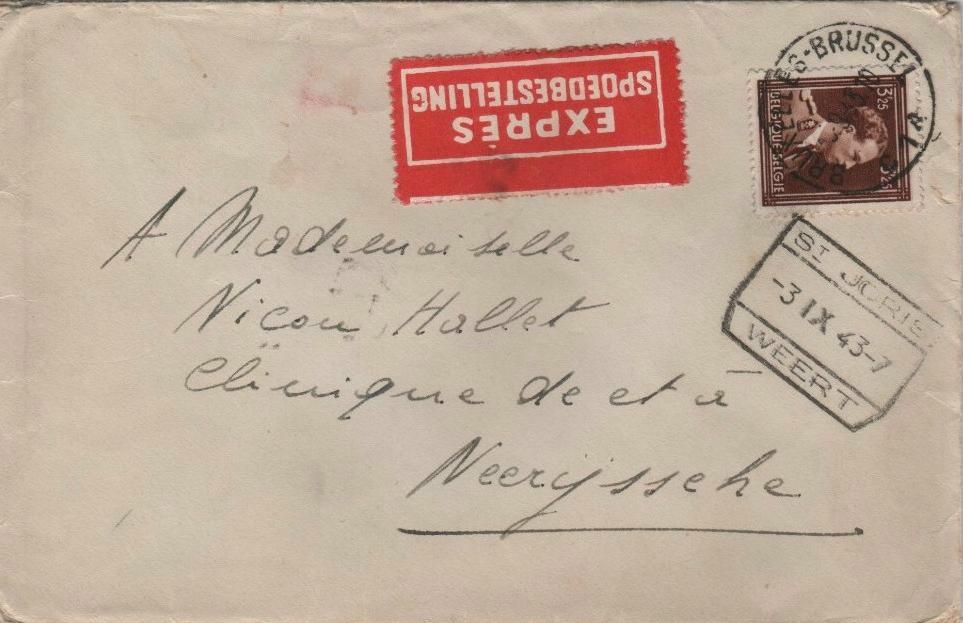 EXPRÈS
SPOEDBESTELLING
BRUXELLES-BRUSSEL
3F25
BELGIQUE-BELGIE
3F25
ST JORIS
-3 IX 43-7
WEERT
A Mademoiselle
Nicou Hallet
Clinique de et à
Neeryssche